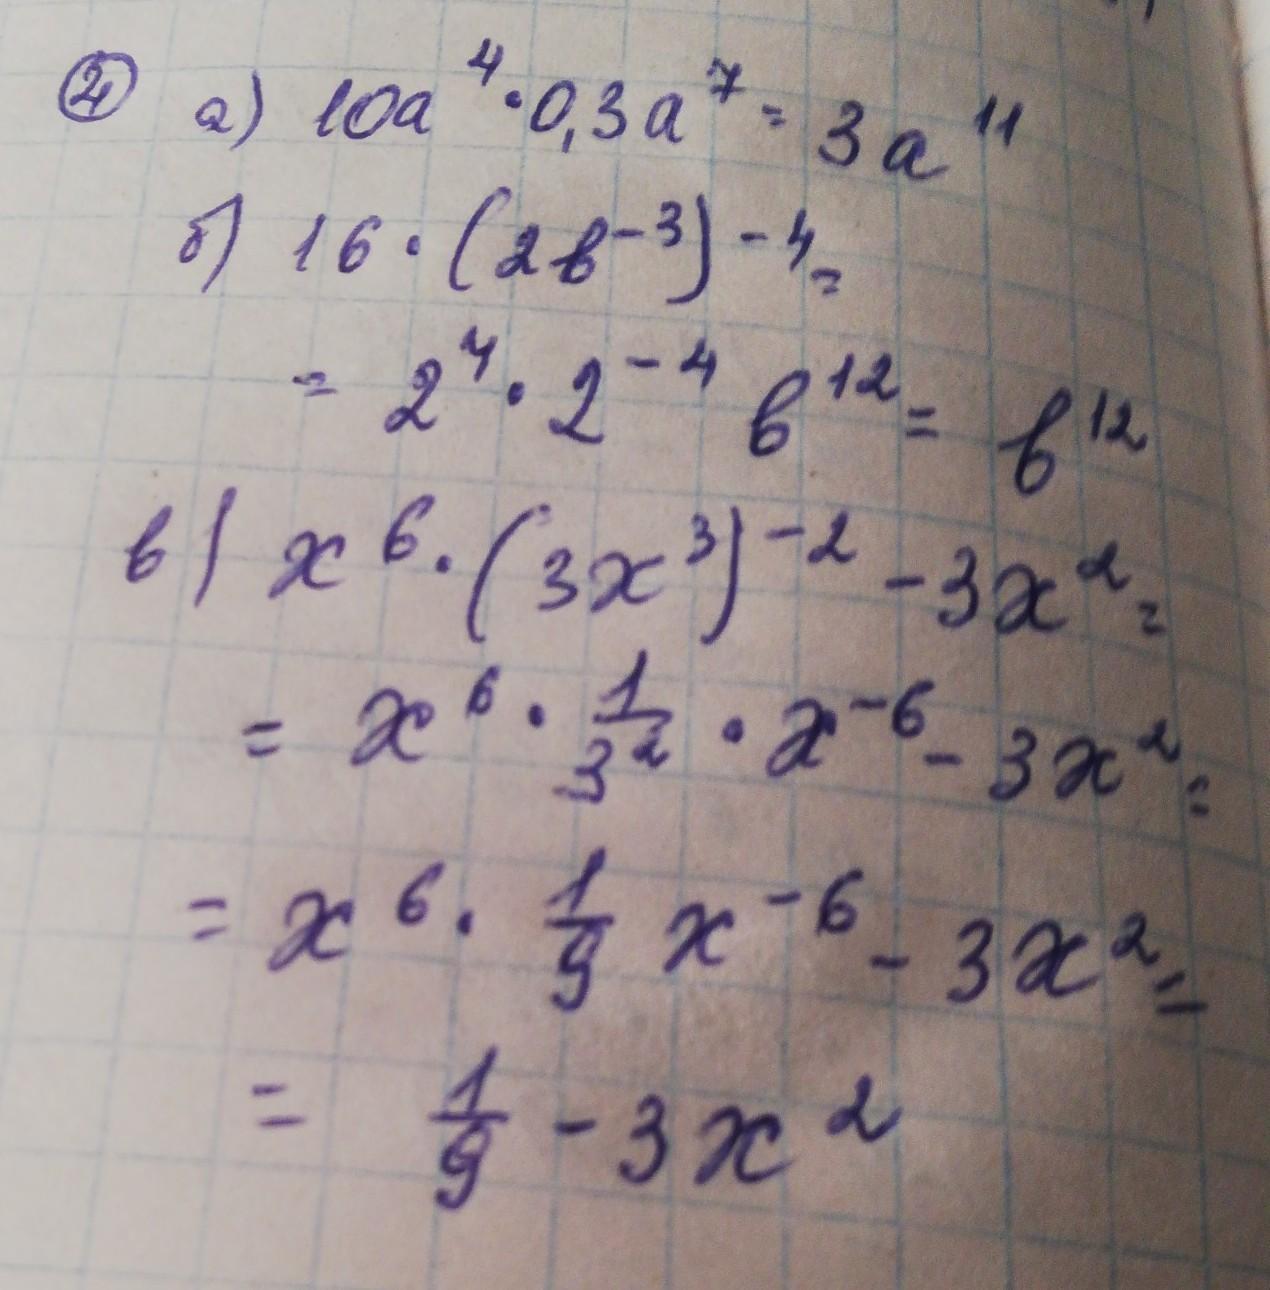 ② а) 10a⁴ · 0,3a⁷ = 3a¹¹
б) 16 · (2b⁻³)⁻⁴ =
= 2⁴ · 2⁻⁴ b¹² = b¹²
в) x⁶ · (3x³)⁻² - 3x² =
= x⁶ · 1/3² · x⁻⁶ - 3x² =
= x⁶ · 1/9 x⁻⁶ - 3x² =
= 1/9 - 3x²